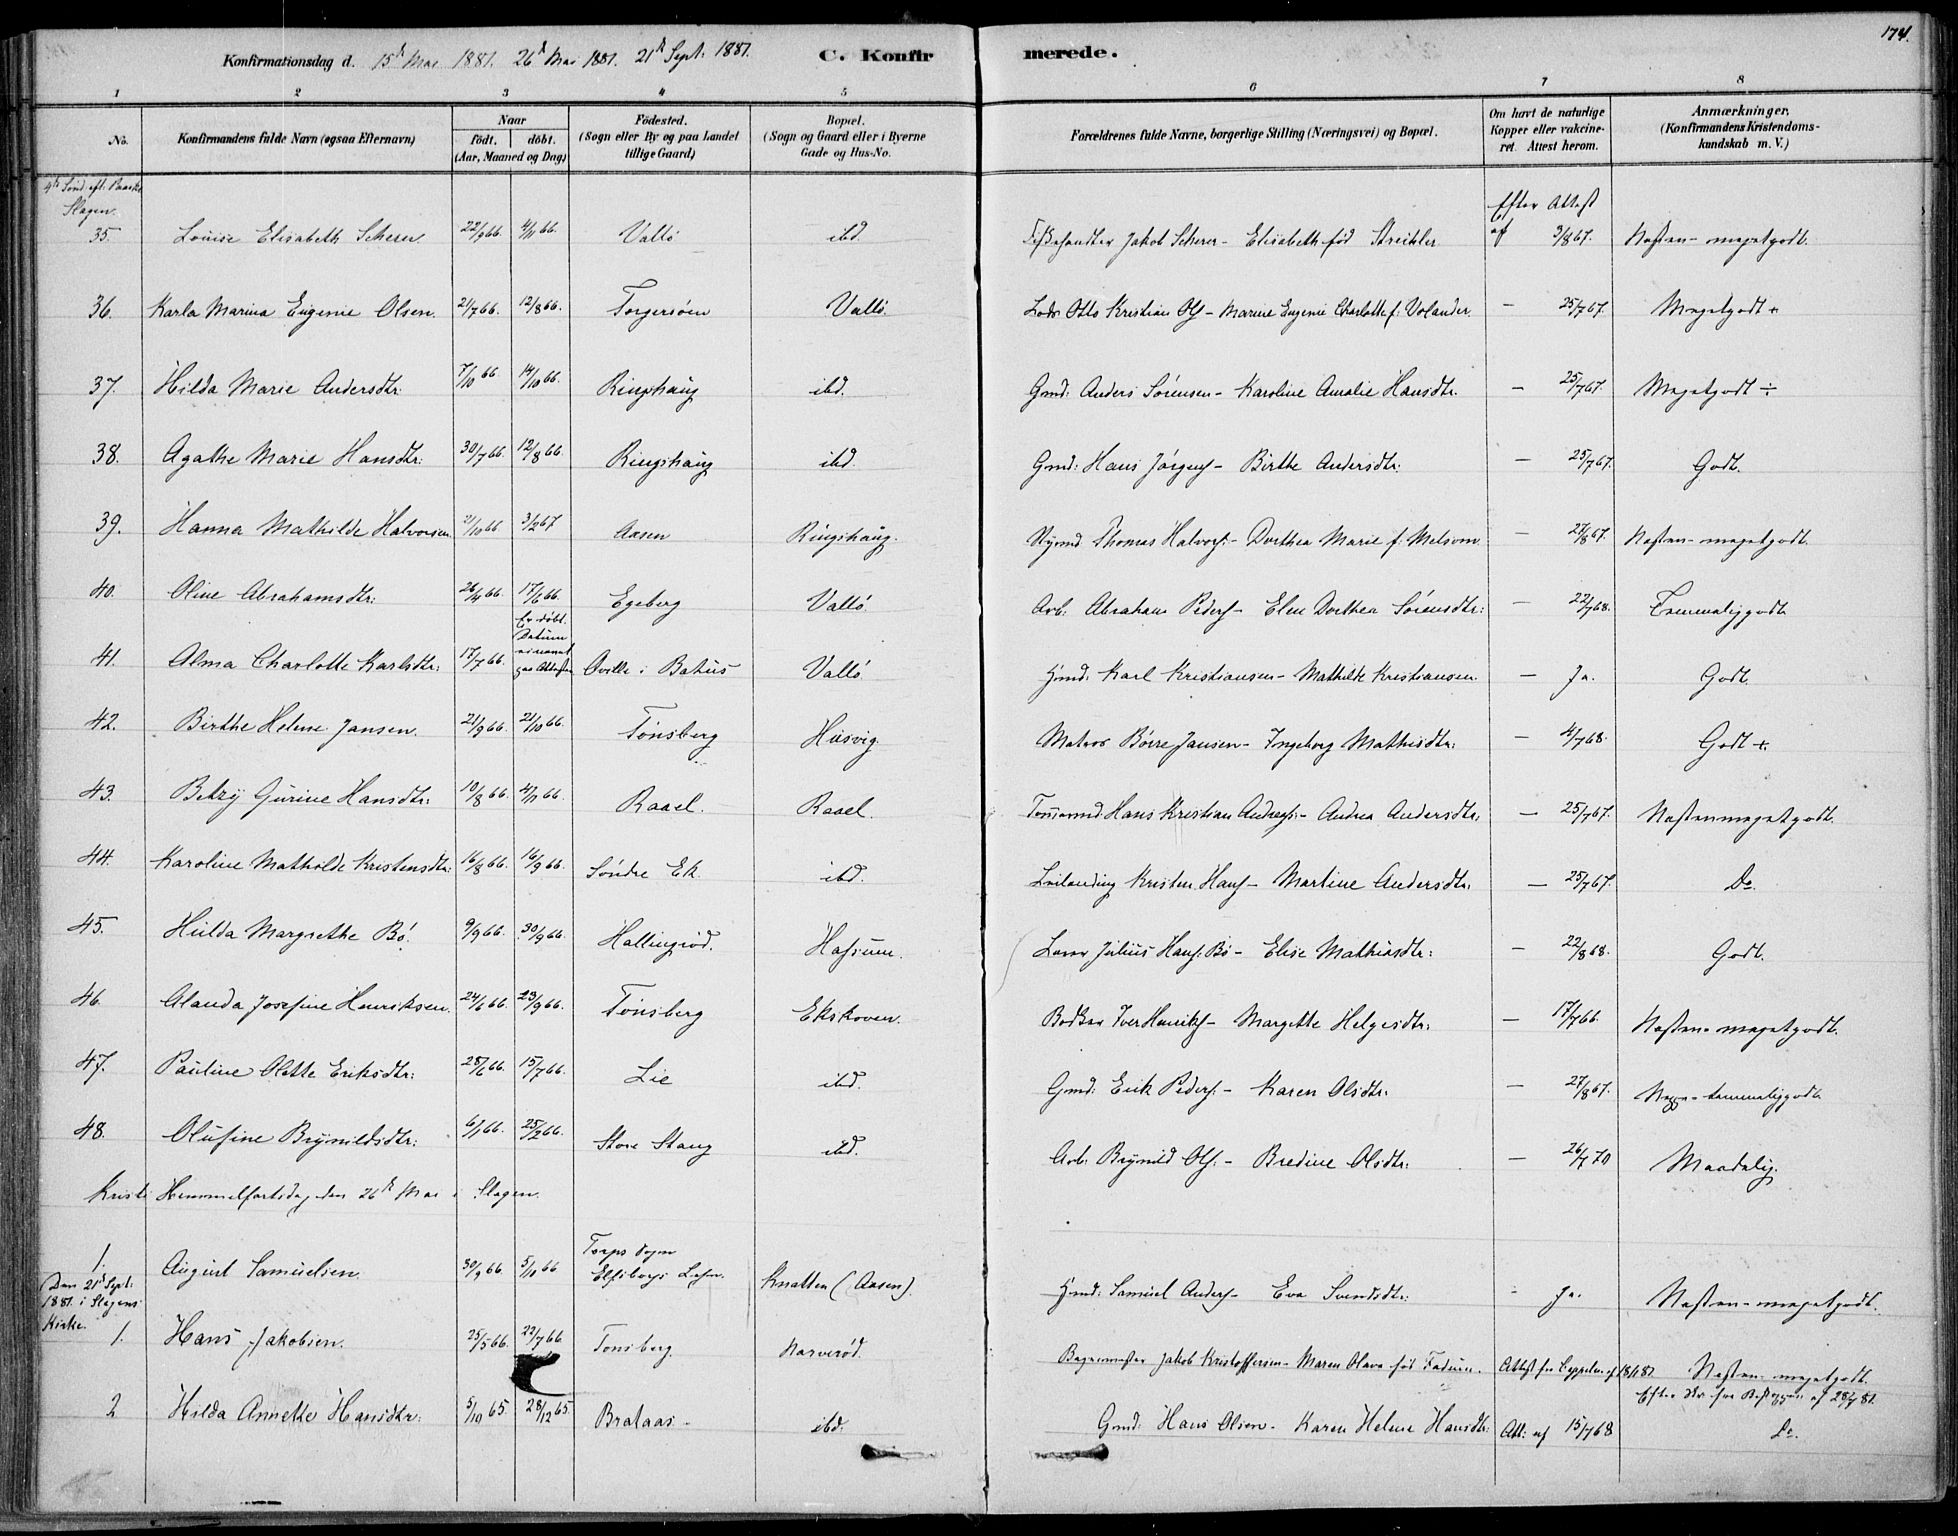 174.
Konfirmationsdag d. 15de Mai 1881. 26de Mai 1881. 21de Sept: 1881. C. Konfirmerede.
1 2 3 4 5 6 7 8
No. Konfirmandens fulde Navn (ogsaa Efternavn) Naar født. døbt. (Aar, Maaned og Dag) Fødested. (Sogn eller By og paa Landet tillige Gaard) Bopæl. (Sogn og Gaard eller i Byerne Gade og Hus-No. Forældrenes fulde Navne, borgerlige Stilling (Næringsvei) og Bopæl. Om havt de naturlige Kopper eller vakcineret. Attest herom. Anmærkninger. (Konfirmandens Kristendomskundskab m. V.)
4de Sønd. eft. Paaske
Slagen.
35. Louise Elisabeth Scherer. 22/9 66. 4/11 66. Vallö ibd. Jakob Scherer - Elisabeth fød Efter Attest af 3/8 67. Næsten - megetgodt.
36. Karla Marina Eugenie Olsen. 21/7 66. 12/8 66. Torgersöen Vallö. Lods Otto Kristian Ols - Marine Eugenie Charlotte f: Volander. — 25/7 67. Megetgodt +
37. Hilda Marie Andersdtr: 7/10 66. 14/10 66. Ringshaug ibd. Gmd: Anders Sörensen - Karoline Amalie Hansdtr. — 25/7 67. Megetgodt ÷
38. Agathe Marie Hansdtr: 30/7 66. 12/8 66. Ringshaug ibd. Gmd: Hans Jörgens - Birthe Andersdtr: — 25/7 67. Godt.
39. Hanna Mathilde Halvorsen. 21/10 66. 3/2 67 Aasen Ringshaug. Thomas Halvors - Dorthea Marie f. Melsom. — 27/8 67. Næsten - megetgodt.
40. Oline Abrahamsdtr: 26/4 66. 17/6 66. Egeberg Vallö. Arb: Abraham Peders - Elen Dorthea Sörensdtr: — 22/7 68. Temmeliggodt
41. Alma Charlotte Karlsdtr: 17/7 66. Er döbt. Datum ei nævnt paa Attesten i Bahus Vallö. Karl Kristiansen - Mathilde Kristiansen — Ja. Godt.
42. Birthe Helene Jansen. 21/9 66. 21/10 66. Tönsberg Husvig. Matros Börre Jansen - Ingeborg Mathisdtr: — 4/7 68. Godt +.
43. Betzy Gurine Hansdtr: 10/8 66. 4/11 66. Raael. Raael. Tömmermd Hans Kristian Andreas: - Andrea Andersdtr: — 25/7 67. Næstenmegetgodt.
44. Karoline Mathilde Kristensdtr: 16/8 66. 16/9 66. Söndre Ek. ibd. Kristen Hans - Martine Andersdtr: — 25/7 67. Do.
45. Hulda Margrethe Bö. 9/9 66. 30/9 66. Hallingröd. Hassum. Lærer Julius Hans: Bö - Elise Mathiasdtr: — 22/8 68. Godt.
46. Alanda Josefine Henriksen. 24/6 66. 23/9 66. Tönsberg Ekskoven. Bödker Iver Henriks - Margethe Helgesdtr: — 17/7 66. Næsten - megetgodt.
47. Pauline Olette Eriksdtr: 28/6 66. 15/7 66. Lie ibd. Gmd: Erik Peders: - Karen Olsdtr: — 27/8 67. Neppe - temmeliggodt
48. Olufine Brynildsdtr: 6/1 66. 25/2 66. Store Stang ibd. Arb: Brynild Ols: - Bredine Olsdtr: — 26/7 70 Maadelig.
Kristi Himmelfartsdag den 26de Mai i Slagen.
1. August Samuelsen. 30/9 66 5/10 66 Torps Sogn Elfsborgs Lehn. Knatten (Aasen). Samuel Anders - Eva Svendsdtr: - Ja. Næsten - megetgodt.
Den 21de Sept: 1881. i Slagens Kirke.
1. Hans Jakobsen. 25/5 66. 22/7 66. Tönsberg. Narveröd. Jakob Kristoffersen - Maren Olava fød Fadum. Attest fra Næsten - megetgodt.
2 Hilda Annette Hansdtr: 5/10 65. 28/12 65. Brataas - ibd: Gmd: Hans Olsen - Karen Helene Hansdtr: Att: af 15/7 68 Do.